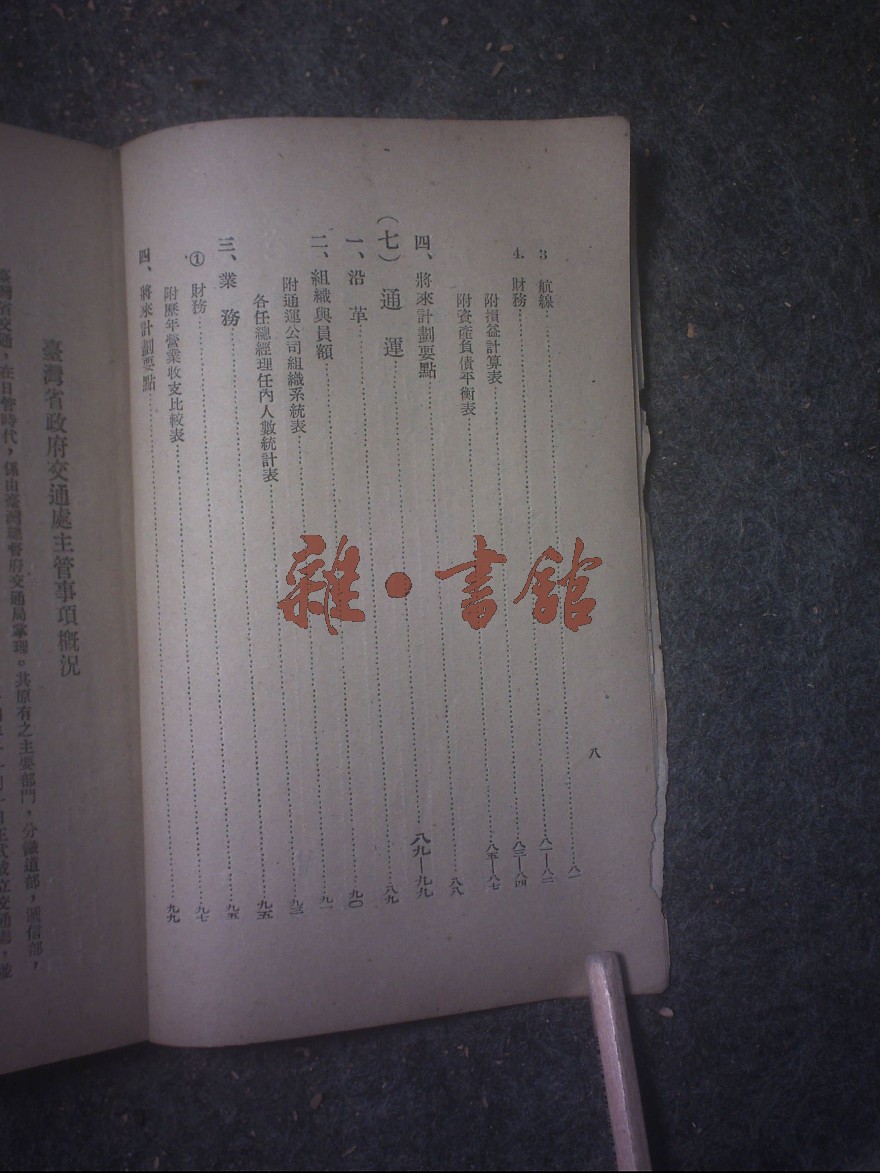 八
3 航線……八一
4. 財務……八一—八二
附損益計算表……八三—八四
附資產負債平衡表……八五—八七
四、將來計劃要點……八八
（七）通運……八九—九九
一、沿革……八九
二、組織與員額……九〇
附通運公司組織系統表……九一
各任總經理任內人數統計表……九三
三、業務……九五
① 財務……九五
附歷年營業收支比較表……九七
四、將來計劃要點……九九
臺灣省政府交通處主管事項概況
臺灣省交通，在日管時代，係由臺灣總督府交通局掌理。其原有之主要部門，分鐵道部，遞信部，
日正式成立交通處，並
雜・書館